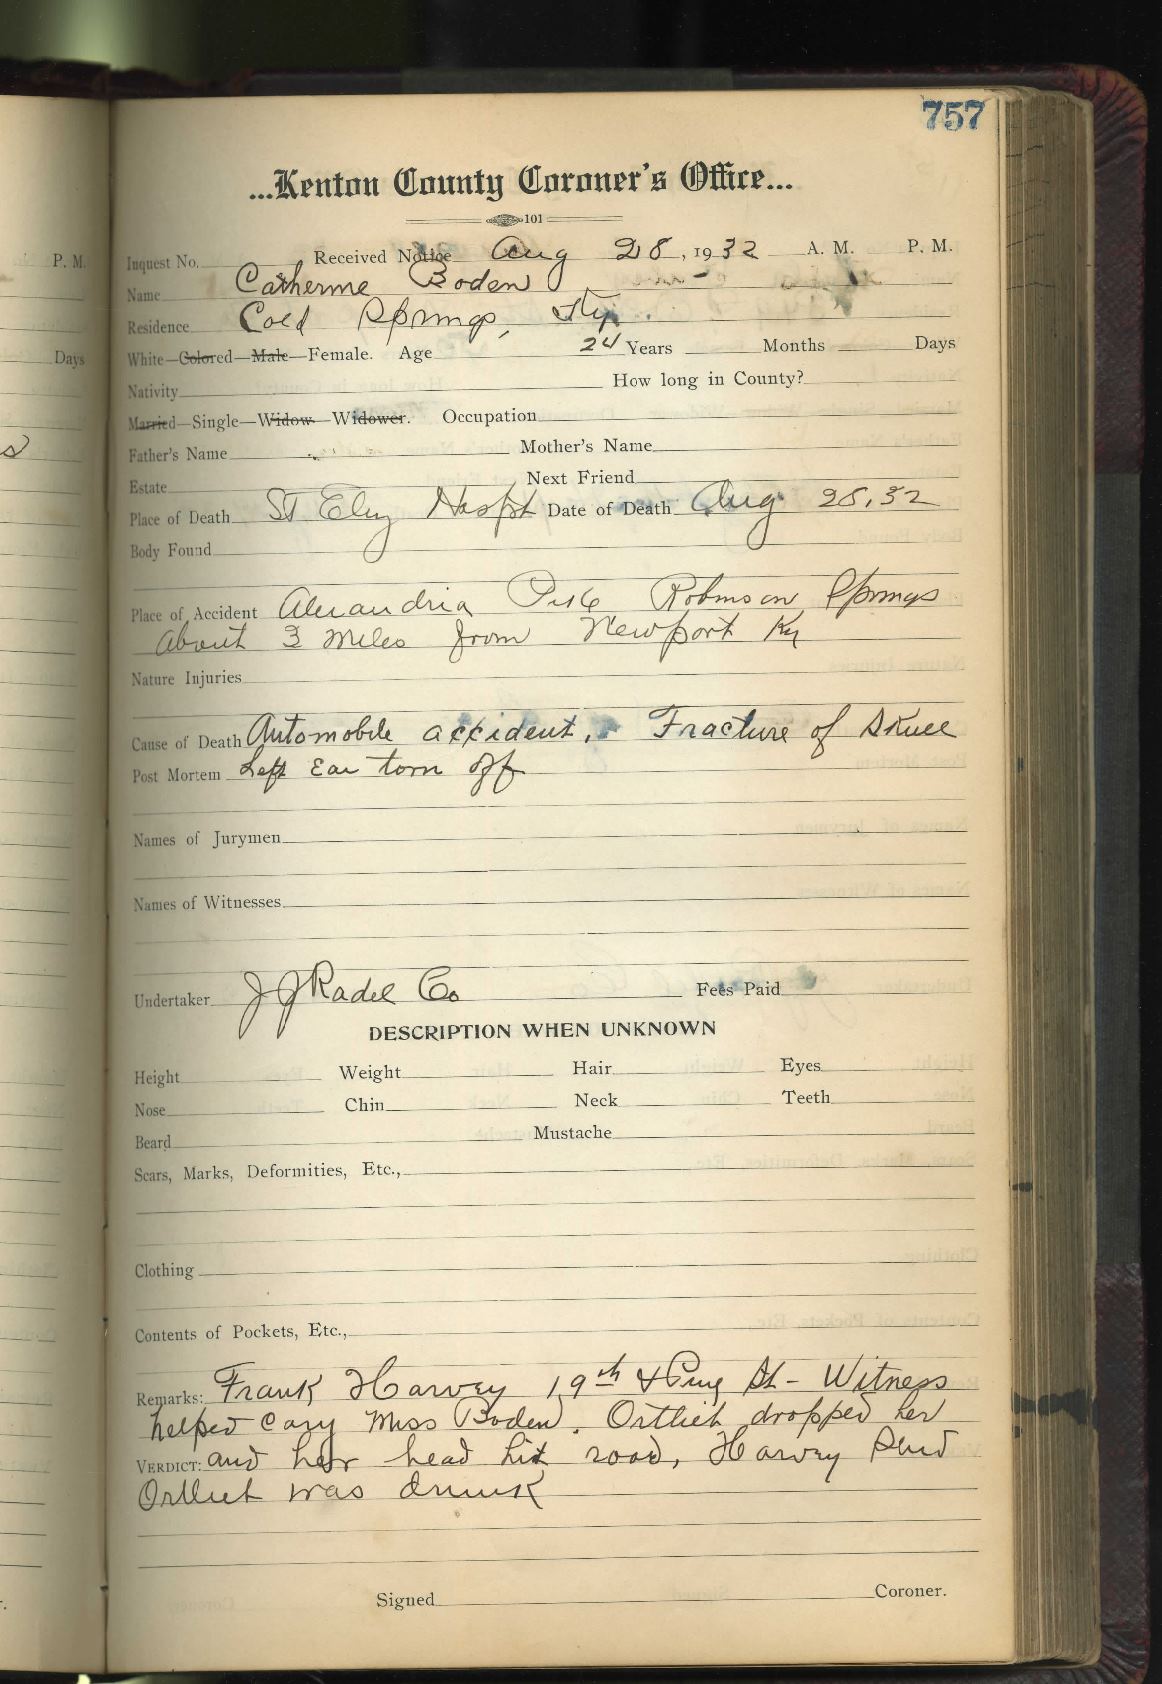 757
...Kenton County Coroner's Office...
101
P. M.
Inquest No. Received Notice Aug 28, 1932 A. M. P. M.
Name Catherine Boden
Residence Cold Springs, Ky.
Days
White—Colored—Male—Female. Age 24 Years Months Days
Nativity How long in County?
Married—Single—Widow—Widower. Occupation
Father's Name Mother's Name
Estate Next Friend
Place of Death St Eliz Hospt Date of Death Aug 28, 32
Body Found
Place of Accident Alexandria Pike Robinson Springs
About 3 Miles from Newport Ky
Nature Injuries
Cause of Death Automobile accident, Fracture of Skull
Post Mortem Left Ear torn off
Names of Jurymen
Names of Witnesses
Undertaker J J Radel Co Fees Paid
DESCRIPTION WHEN UNKNOWN
Height Weight Hair Eyes
Nose Chin Neck Teeth
Beard Mustache
Scars, Marks, Deformities, Etc.,
Clothing
Contents of Pockets, Etc.,
Remarks: Frank Harvey 19th & St - Witness
helped cary Miss Boden. Ortlieb dropped her
VERDICT: and her head hit road, Harvey said
Ortlieb was drunk
Signed Coroner.